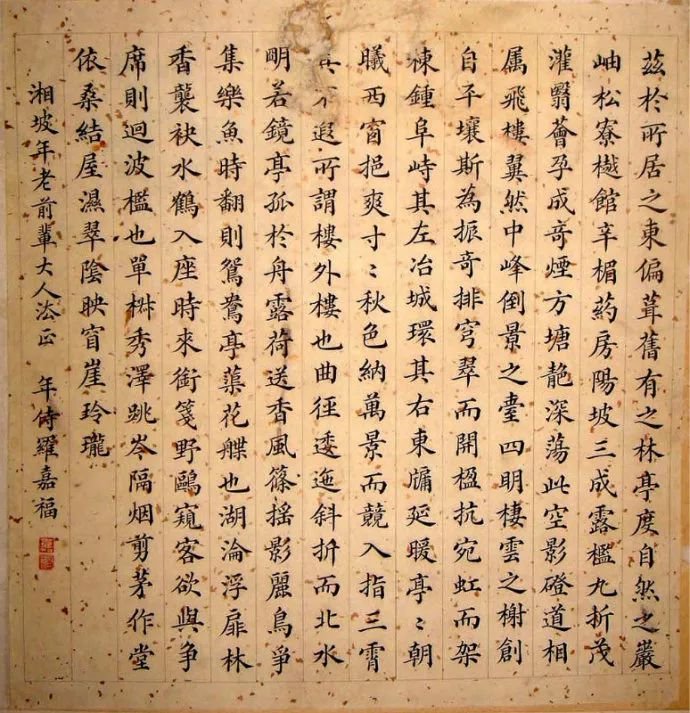 茲於所居之東偏葺舊有之林亭度自然之巖
岫松寮樾館辛楣葯房陽坡三成露檻九折茂
灌翳薈孕成奇煙方塘靘深蕩此空影磴道相
属飛樓翼然中峰倒景之臺四明棲雲之榭創
自平壤斯為振奇排穹翠而開楹抗宛虹而架
棟鍾阜峙其左冶城環其右東牖延暖亭〻朝
曦西窗挹爽寸〻秋色納萬景而競入指三霄
其不遐所謂樓外樓也曲徑逶迤斜折而北水
明若鏡亭孤於舟露荷送香風篠搖影麗鳥爭
集樂魚時翻則鴛鴦亭蕖花艓也湖淪浮扉林
香襲袂水鶴入座時來銜箋野鷗窺客欲與争
席則迴波檻也單椒秀澤跳岑隔烟剪茅作堂
依桑結屋濕翠陰映窅崖玲瓏
湘坡年老前輩大人法正 年侍羅嘉福